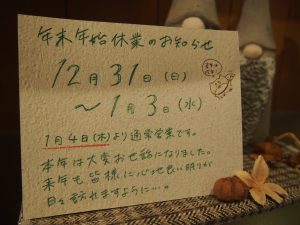 年末年始休業のお知らせ
12月31日(日)
～1月3日(水)
1月4日(木)より通常営業です。
本年は大変お世話になりました。
来年も皆様に心地良い明りが
日々訪れますように…。